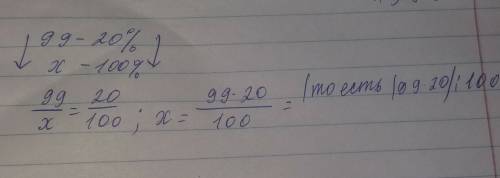 ↓ 99 - 20% ↓
x - 100%
99/x = 20/100 ; x = 99·20/100 = (то есть (99·20):100